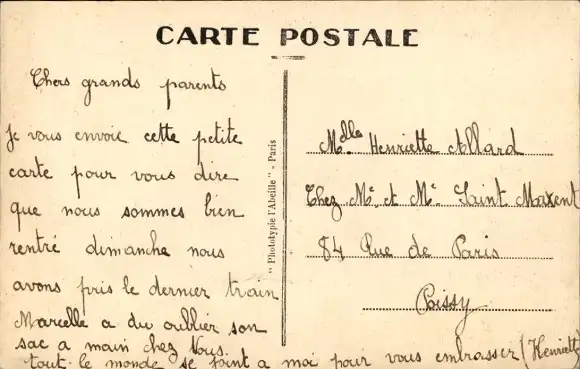 CARTE POSTALE
Chers grands parents
Je vous envoie cette petite
carte pour vous dire
que nous sommes bien
rentré dimanche nous
avons pris le dernier train
Marcelle a du oublier son
sac a main chez Vous.
tout le monde se joint a moi pour vous embrasser (Henriette
" Phototypie l'Abeille " - Paris
Mdlle Henriette Allard
Chez Mr et Me Saint Maxent
84 Rue de Paris
Poissy